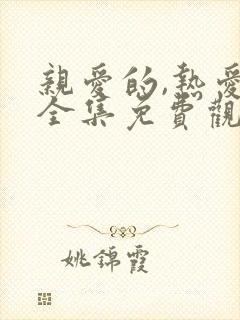 親愛的,熱愛
全集免費觀
姚錦霞